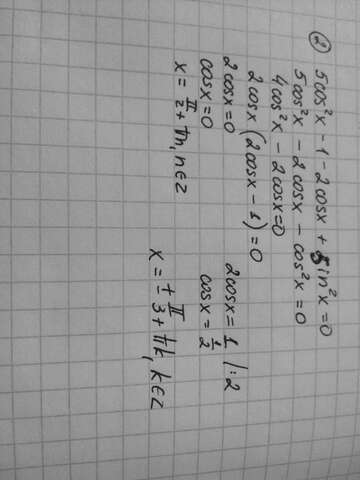 ② 5cos²x - 1 - 2cosx + sin²x = 0
5cos²x - 2cosx - cos²x = 0
4cos²x - 2cosx = 0
2cosx (2cosx - 1) = 0
2cosx = 0
cosx = 0
x = π/2 + πn, n∈z
2cosx = 1 |:2
cosx = 1/2
x = ± π/3 + πk, k∈z